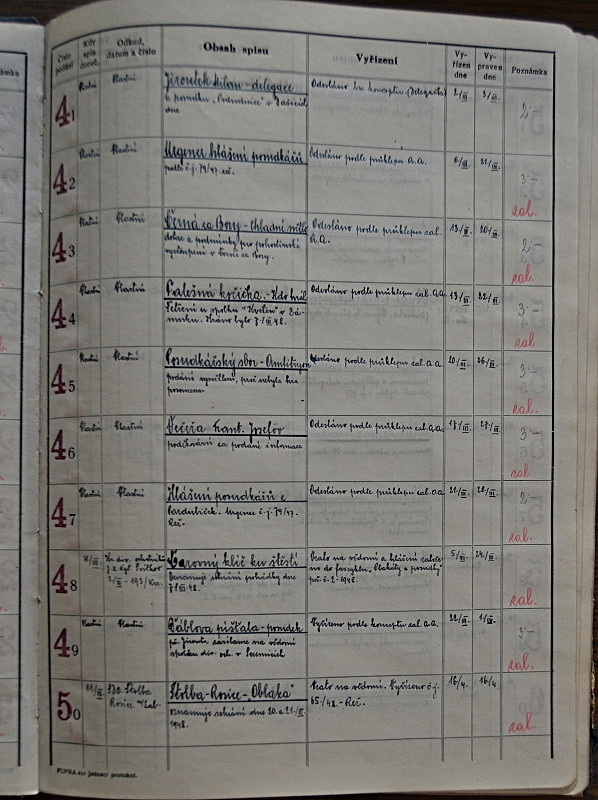 Číslo podání
Kdy spis doruč.
Odkud, datum a číslo
Obsah spisu
Vyřízení
Vyřízen dne
Vypraven dne
Poznámka
41
Vlastní
Vlastní
Jiroutek Milan - delegace
k pomudku
dne
Odesláno bu konceptu (Delegačka)
2/III.
3/III.
2·–
42
Vlastní
Vlastní
Urgence hlášení pomudkářů
podle č.j. 79/47. reč.
Odesláno podle průklepu a.a.
6/III.
31/III.
3·–
zal.
43
Vlastní
Vlastní
Černá za Bory -
dotaz a podmínky pro pohostinské
vystoupení v Černé za Bory.
Odesláno podle průklepu zal.
a.a.
13/III.
20/III.
2·–
zal.
44
Vlastní
Vlastní
Palešná kočička. - Kdo hrál
Šetření u spolku "Květen" v Zá-
mrsku. Hráno bylo 7./III.48.
Odesláno podle průklepu zal. a.a.
13/III.
22/III.
3·–
zal.
45
Vlastní
Vlastní
Pomudkářský sbor - Amfitryon
podání vysvětlení, proč nebyla hra
Odesláno podle průklepu zal. a.a.
20/III.
26/III.
3·–
zal.
46
Vlastní
Vlastní
Kant. Josefov
poděkování za podané informace
Odesláno podle průklepu zal. a.a.
17/III.
27/III.
3·–
zal
47
Vlastní
Vlastní
Hlášení pomudkářů z
Pardubiček. Urgence č.j. 79/47.
Reč.
Odesláno podle průklepu zal. a.a.
21/III.
28/III.
2·–
zal.
48
Kr. div. ochotníků
J. K. Tyl Svítkov
2/III - 193/Kre.
Čarovný klíč ku štěstí
Oznamuje sehrání pohádky dne
7/III.48.
Vzato na vědomí a hlášení zalo-
no do fasciklu „Plakáty a pomudky"
při. č. 2 - 1948.
5/III.
24/III.
zal.
49
Vlastní
Vlastní
Ďáblova píšťala - pomudek
př. Jirouta, zasíláme na vědomí
spolku div. och. v Sezemicích
Vyřízeno podle konceptu zal. a.a.
22/III.
1/III.
3·–
zal.
50
11/III.
SDO. Stolba
Rosice n/Lab.
Stolba - Rosice - "Oblaka"
oznamuje sehrání dne 20. a 21./III.
1948.
Vzato na vědomí. Vyřízeno č.j.
65/48. - Reč.
16/4.
16/4
zal.
jednací protokol.